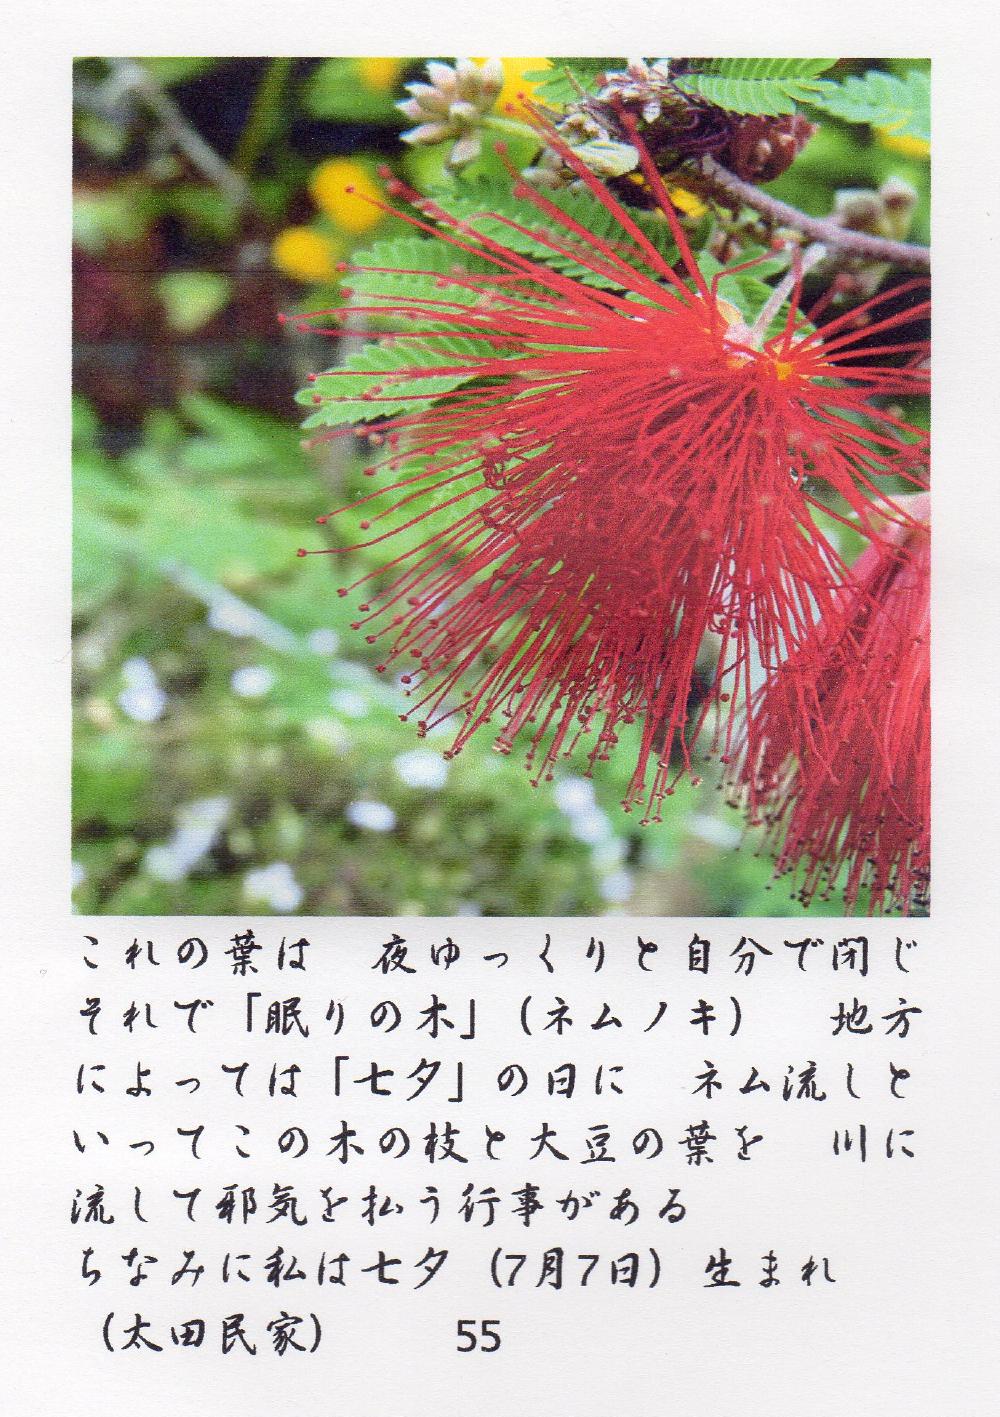 これの葉は　夜ゆっくりと自分で閉じ
それで「眠りの木」（ネムノキ）　地方
によっては「七夕」の日に　ネム流しと
いってこの木の枝と大豆の葉を　川に
流して邪気を払う行事がある
ちなみに私は七夕（7月7日）生まれ
（太田民家）　55